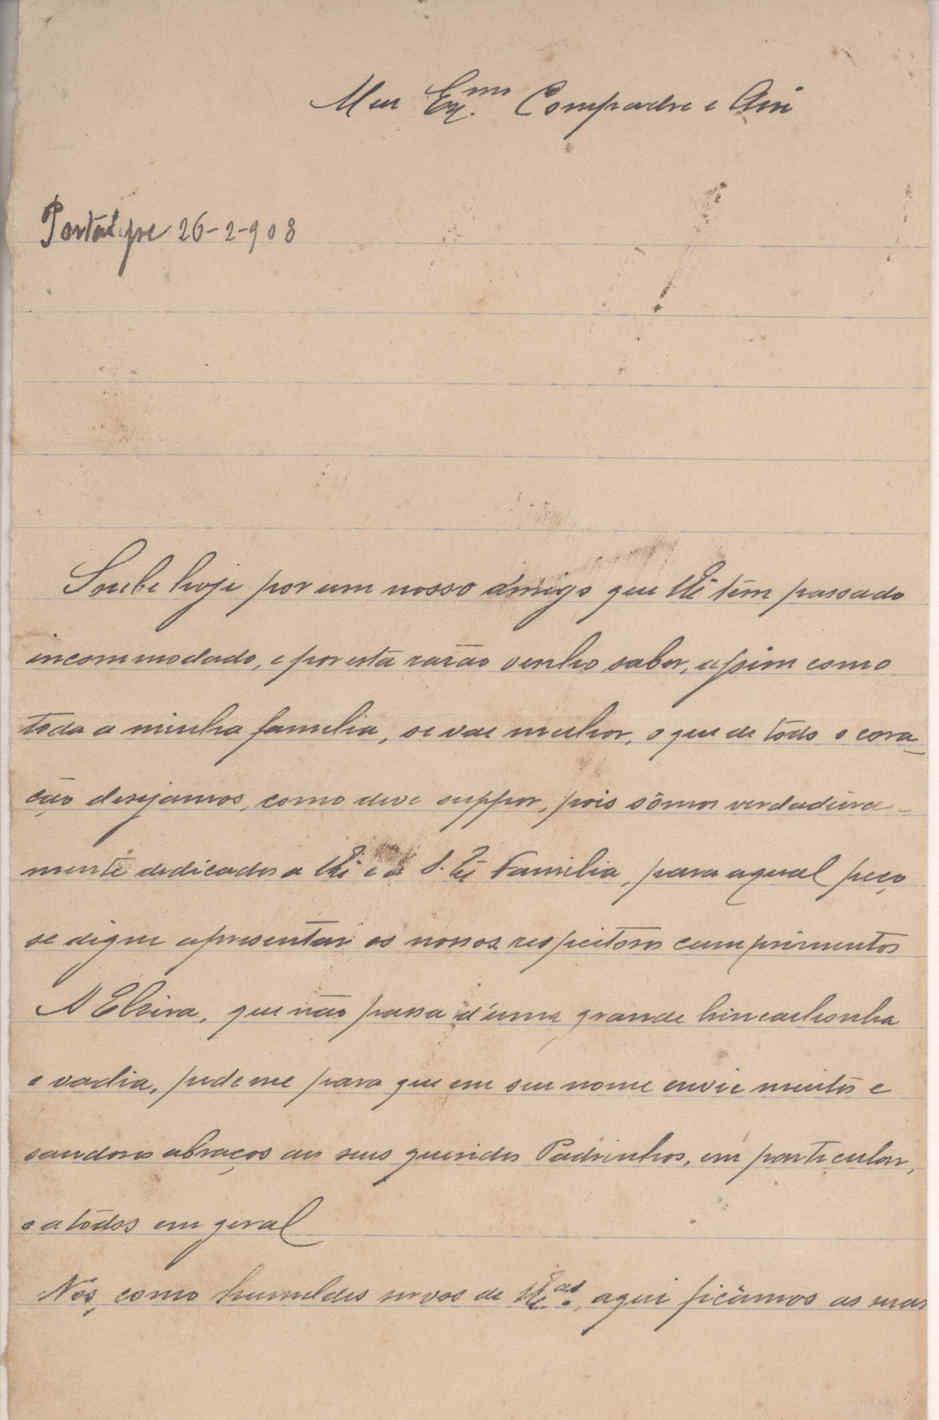 Meu Ex.mo Compadre e Am
Portalegre 26-2-908
Soube hoje por um nosso amigo que V.Ex.ª têm passado
incommodado, e por esta razão venho saber, assim como
toda a minha familia, se vae melhor, o que de todo o cora-
ção desejamos, como deve suppor, pois sômos verdadeira-
mente dedicados a V.Ex.ª e á S. Ex.ª Familia, para a qual peço
se digne apresentar os nossos respeitosos cumprimentos
A Elvira, que não passa d'uma grande brincalhonha
e vadia, pede me para que em seu nome envie muitos e
saudosos abraços aos seus queridos Padrinhos, em particular,
e a todos em geral
Nós, como humildes servos de V.Ex.as, aqui ficâmos as suas